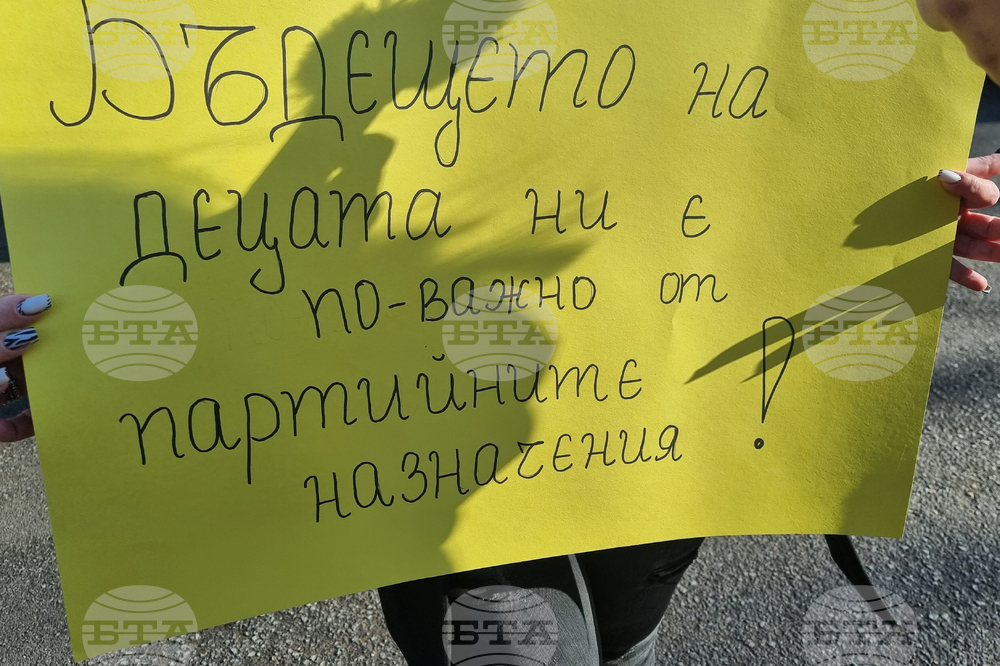 Бъдещето на
децата ни е
по-важно от
партийните
назначения!
БТА
БТА
БТА
БТА
БТА
БТА
БТА
БТА
БТА